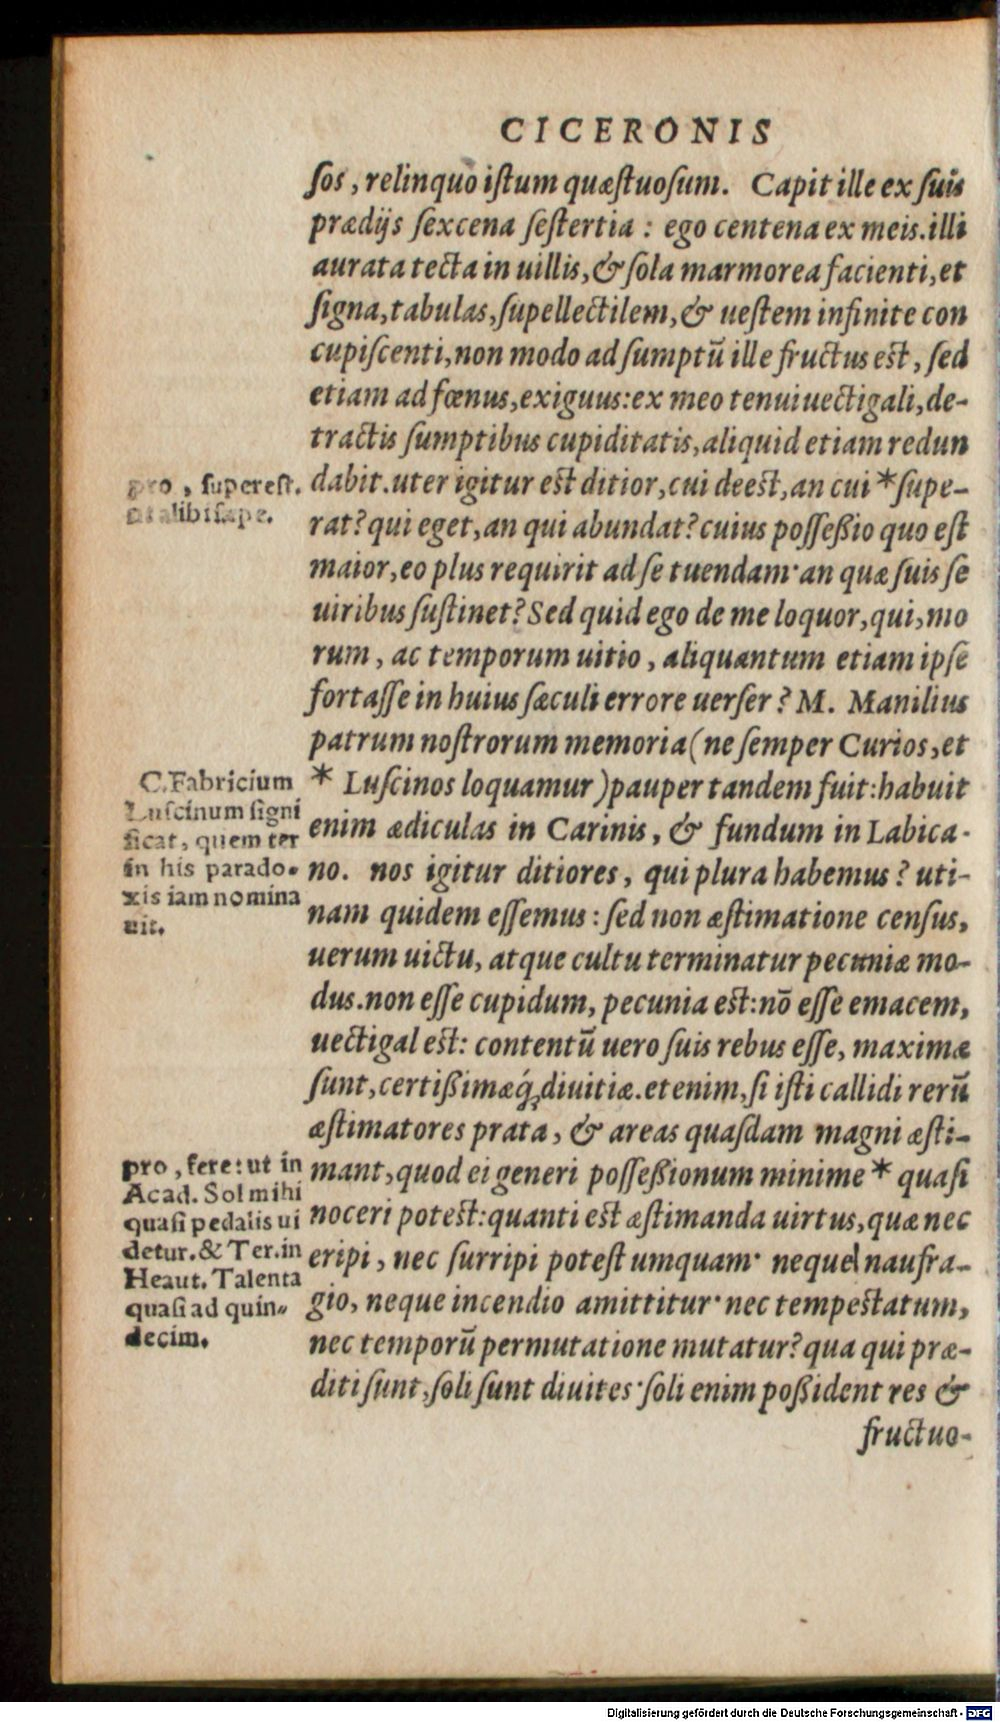 CICERONIS
ſos, relinquo iſtum quæſtuoſum. Capit ille ex ſuis
prædijs ſexcena ſeſtertia : ego centena ex meis. illi
aurata tecta in uillis, & ſola marmorea facienti, et
ſigna, tabulas, ſupellectilem, & ueſtem infinite con
cupiſcenti, non modo ad ſumptū ille fructus est, ſed
etiam ad fœnus, exiguus: ex meo tenui uectigali, de-
tractis ſumptibus cupiditatis, aliquid etiam redun
dabit. uter igitur est ditior, cui deest, an cui * ſupe-
rat? qui eget, an qui abundat? cuius poſſeßio quo eſt
maior, eo plus requirit ad ſe tuendam· an quæ ſuis ſe
uiribus ſuſtinet? Sed quid ego de me loquor, qui, mo
rum, ac temporum uitio, aliquantum etiam ipſe
fortaſſe in huius ſæculi errore uerſer? M. Manilius
patrum noſtrorum memoria (ne ſemper Curios, et
* Luſcinos loquamur) pauper tandem fuit: habuit
enim ædiculas in Carinis, & fundum in Labica-
no. nos igitur ditiores, qui plura habemus? uti-
nam quidem eſſemus: ſed non æſtimatione cenſus,
uerum uictu, atque cultu terminatur pecuniæ mo-
dus. non eſſe cupidum, pecunia est: nō eſſe emacem,
uectigal est: contentū uero ſuis rebus eſſe, maximæ
ſunt, certißimæq́; diuitiæ. etenim, ſi iſti callidi rerū
æſtimatores prata, & areas quaſdam magni æſti-
mant, quod ei generi poſſeßionum minime * quaſi
noceri potest: quanti est æſtimanda uirtus, quæ nec
eripi, nec ſurripi poteſt umquam· neque naufra-
gio, neque incendio amittitur· nec tempeſtatum,
nec temporū permutatione mutatur? qua qui præ-
diti ſunt, ſoli ſunt diuites· ſoli enim poßident res &
fructuo-
pro, ſupereſt.
ut alibi ſæpe.
C. Fabricium
Luſcinum ſigni
ficat, quem ter
in his parado-
xis iam nomina
uit.
pro, fere: ut in
Acad. Sol mihi
quaſi pedalis ui
detur. & Ter. in
Heaut. Talenta
quaſi ad quin-
decim.
Digitalisierung gefördert durch die Deutsche Forschungsgemeinschaft - DFG